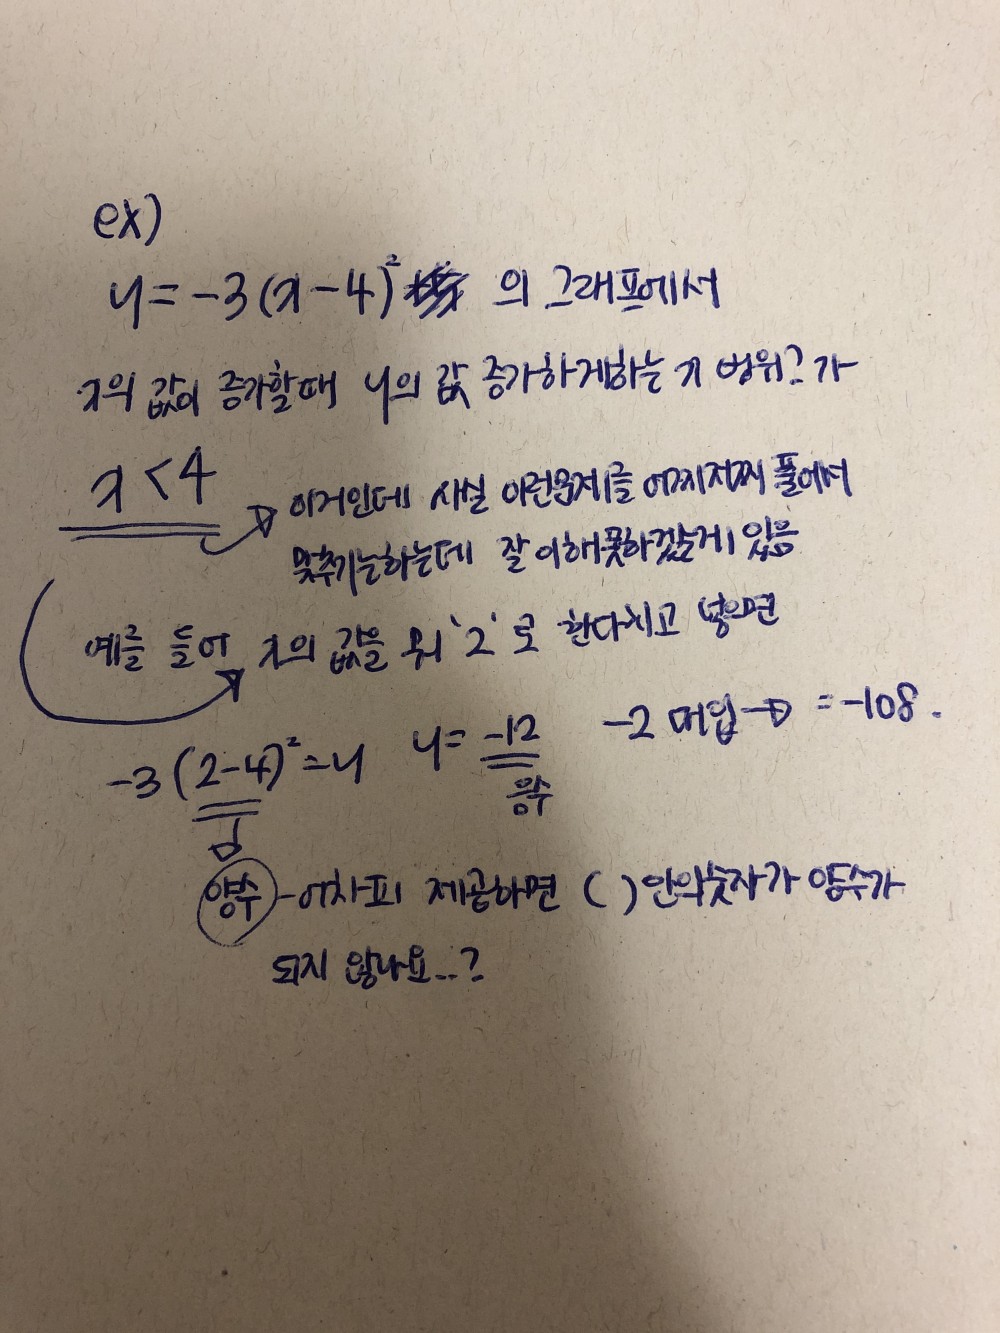 ex)
y = -3(x-4)² 의 그래프에서
x의 값이 증가할때 y의 값 증가하게하는 x 범위?가
x < 4
이거인데 사실 이런문제를 어찌저찌 풀어서
맞추기는하는데 잘 이해못하겠는게 있음
예를 들어 x의 값을 뭐 '2'로 한다치고 넣으면
-3(2-4)² = y y = -12 -2 대입→ = -108.
음수
양수 -어차피 제곱하면 ( )안의숫자가 양수가
되지 않나요..?